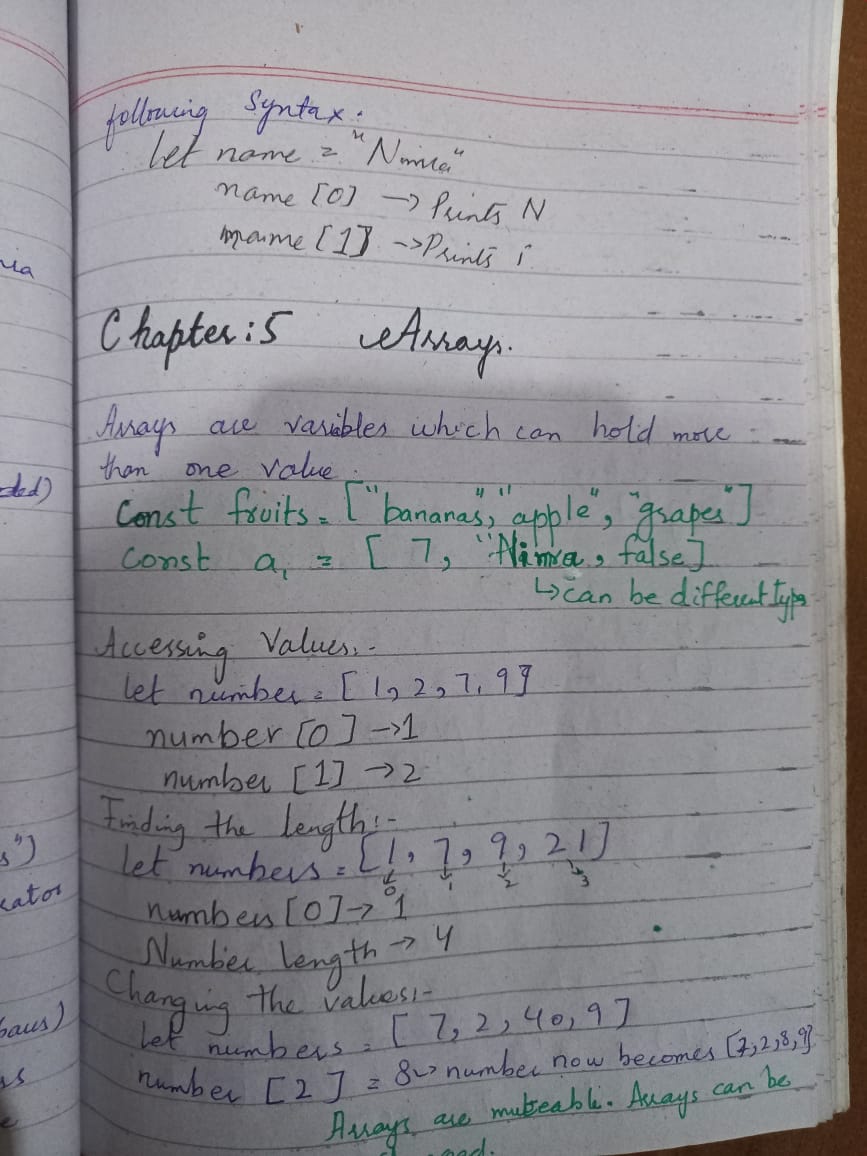 following Syntax:
let name = "Nimra"
name [0] → Prints N
name [1] → Prints i
Chapter: 5 Arrays.
Arrays are variables which can hold more
than one value.
Const fruits = ["bananas", "apple", "grapes"]
Const a, = [ 7, "Nimra, false]
↳ can be different type
Accessing Values:-
let number = [1, 2, 7, 9]
number [0] → 1
number [1] → 2
Finding the length:-
let numbers = [1, 7, 9, 21]
0 1 2 3
numbers [0] → 1
Number length → 4
Changing the values:-
let numbers = [ 7, 2, 40, 9 ]
number [2] = 8 → number now becomes [7,2,8,9]
Arrays are muteable. Arrays can be
nia
ded)
s")
cator
baus)